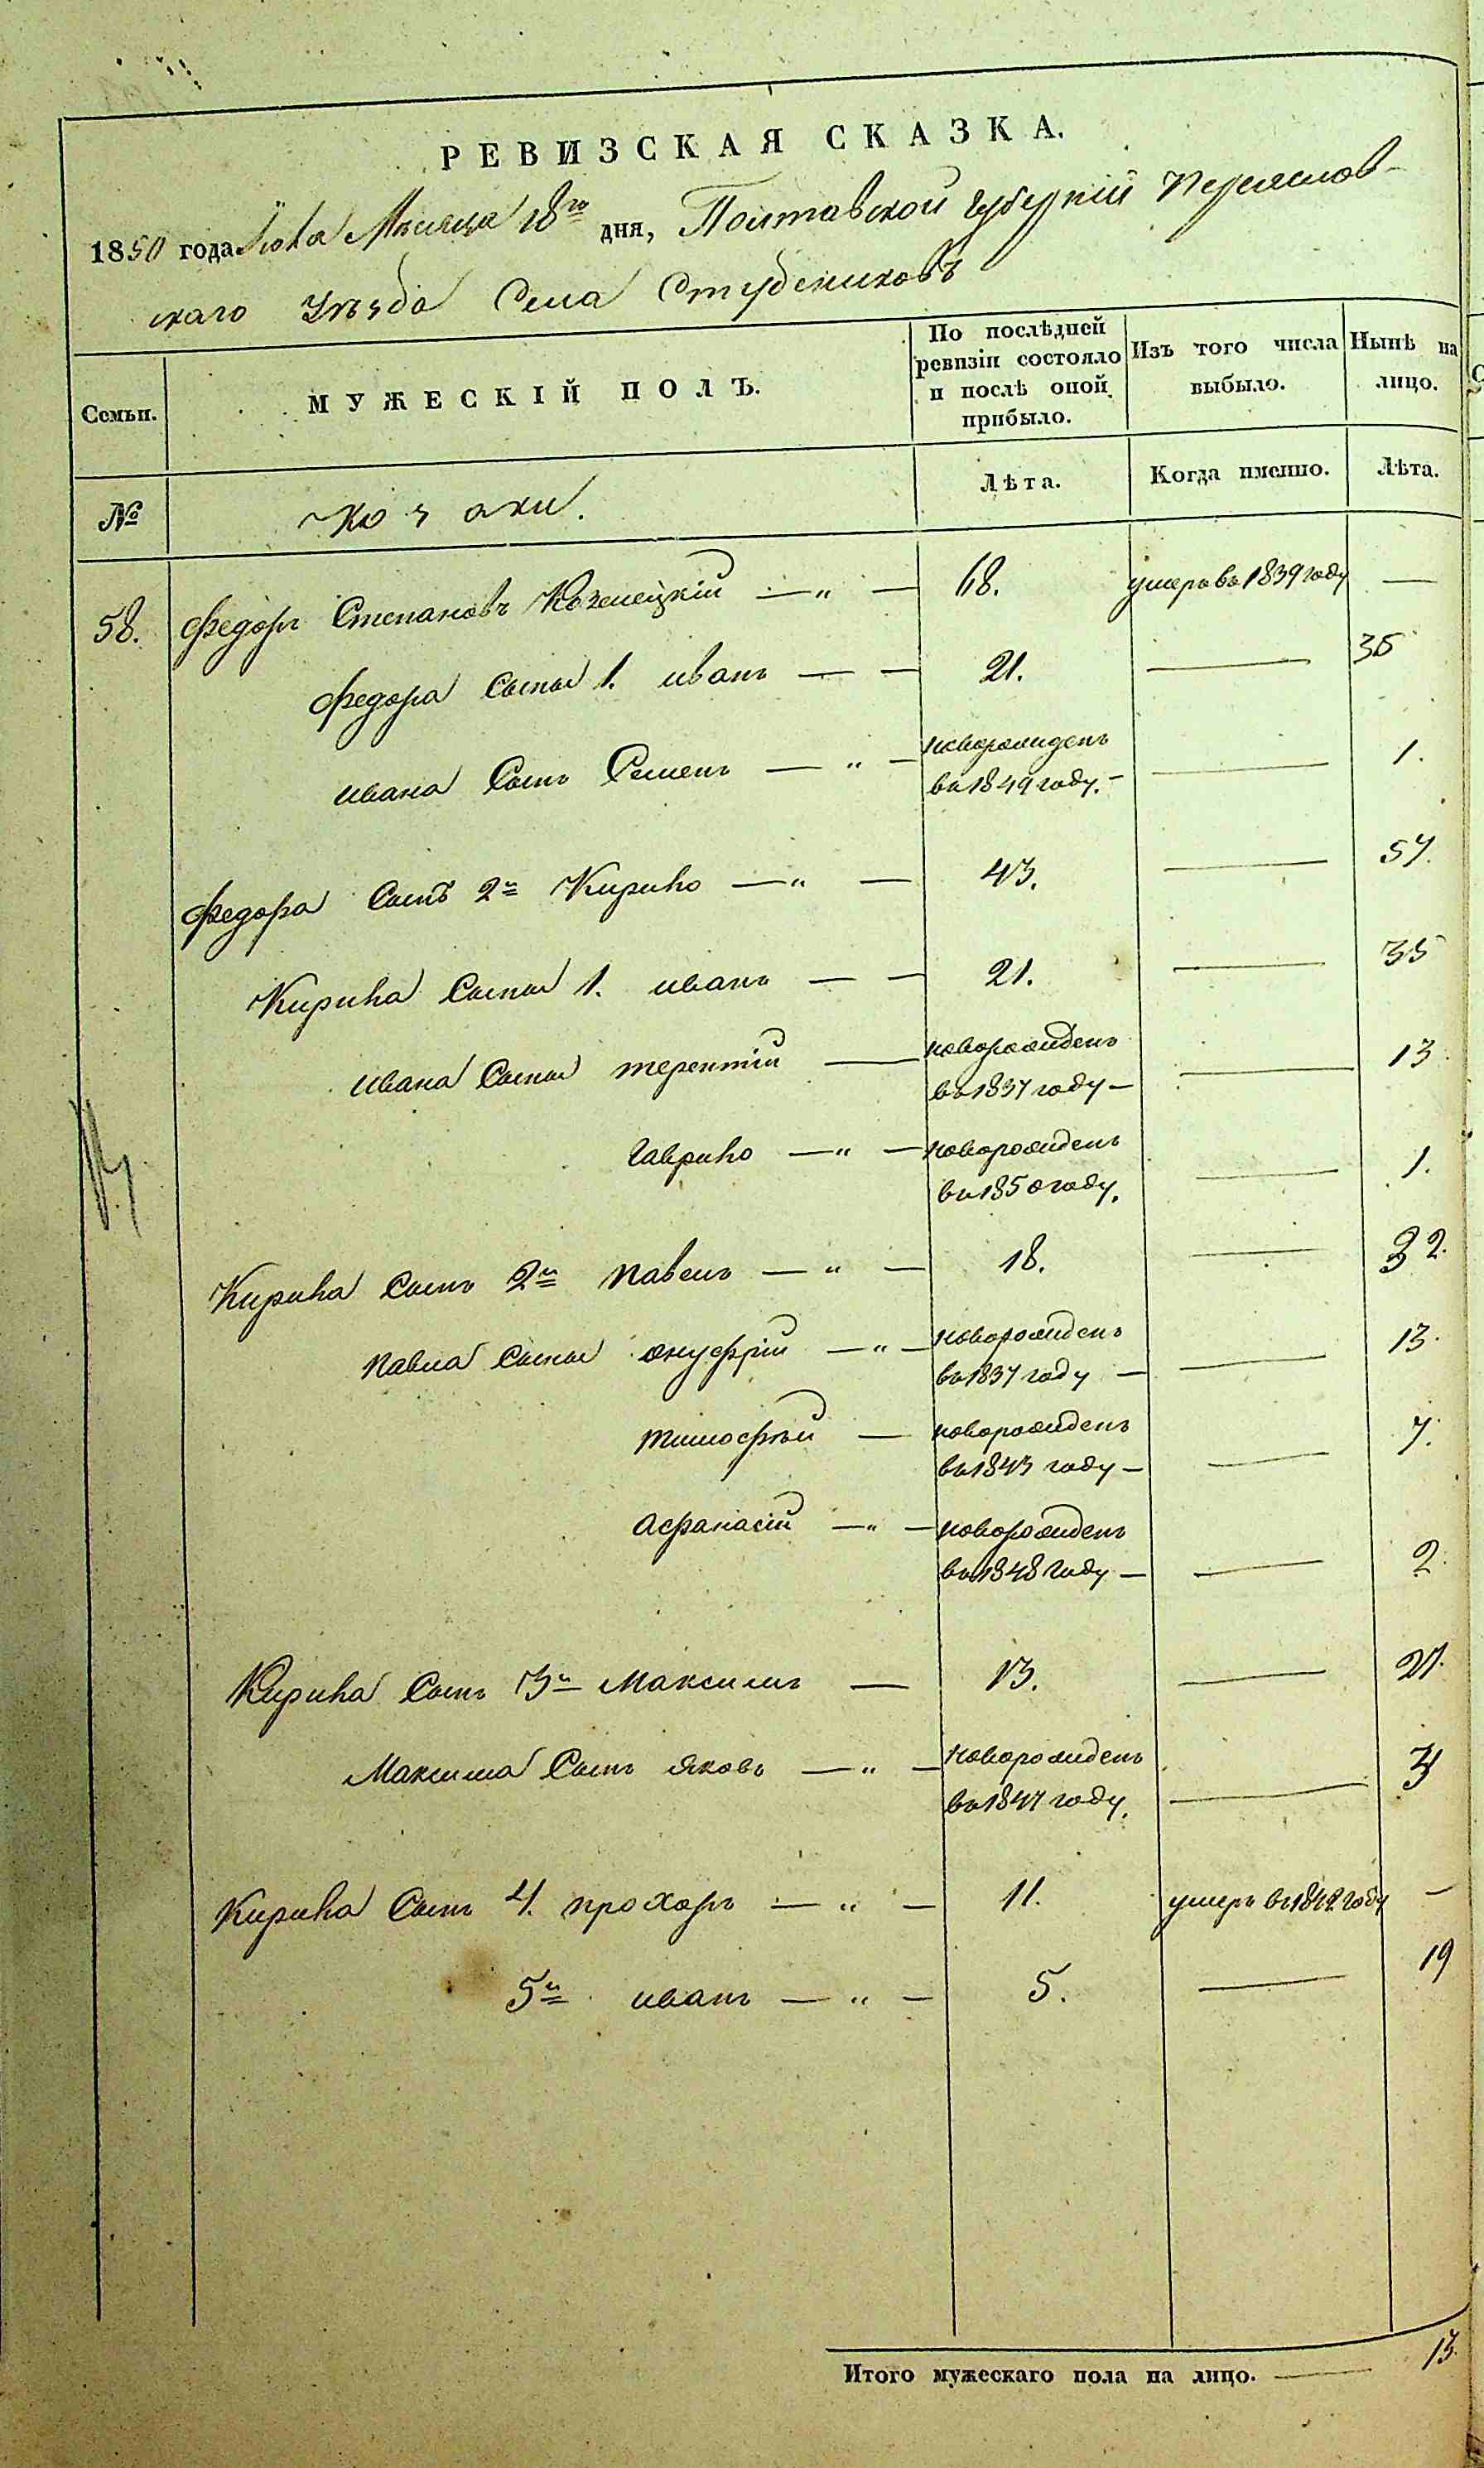 РЕВИЗСКАЯ СКАЗКА.
1850 года Июля Месяца 18го дня, Полтавской Губерніи Переяслов-
скаго Уѣзда Села Студениковъ
Семьи.
МУЖЕСКІЙ ПОЛЪ.
По послѣдней ревизіи состояло и послѣ оной прибыло.
Изъ того числа выбыло.
Нынѣ на лицо.
№
Козаки.
Лѣта.
Когда именно.
Лѣта.
58. Федоръ Степановъ Козелецкій — „ — 68. умеръ въ 1839 году —
Федора Сыны 1. иванъ — — 21. — 35
ивана Сынъ Семенъ — „ — новорожденъ
въ 1849 году. — — 1.
Федора Сынъ 2й Кирило — „ — 43. — 57.
Кирила Сыны 1. иванъ — — 21. — 35
ивана Сыны терентій — новорожденъ
въ 1837 году — — 13
Гаврило — „ — новорожденъ
въ 1850 году. — 1.
Кирила Сынъ 2й павелъ — „ — 18. — 32.
павла Сыны онуфрій — „ — новорожденъ
въ 1837 году — — 13.
тимофѣй — новорожденъ
въ 1843 году — — 7.
Афанасій — „ — новорожденъ
въ 1848 году — — 2.
Кирила Сынъ 3й Максимъ — 13. — 27.
Максима Сынъ яковъ — „ — новорожденъ
въ 1847 году. — 3
Кирила Сынъ 4. прохоръ — „ — 11. умеръ въ 1842 году —
5й иванъ — „ — 5. — 19
Итого мужескаго пола на лицо. — 13.